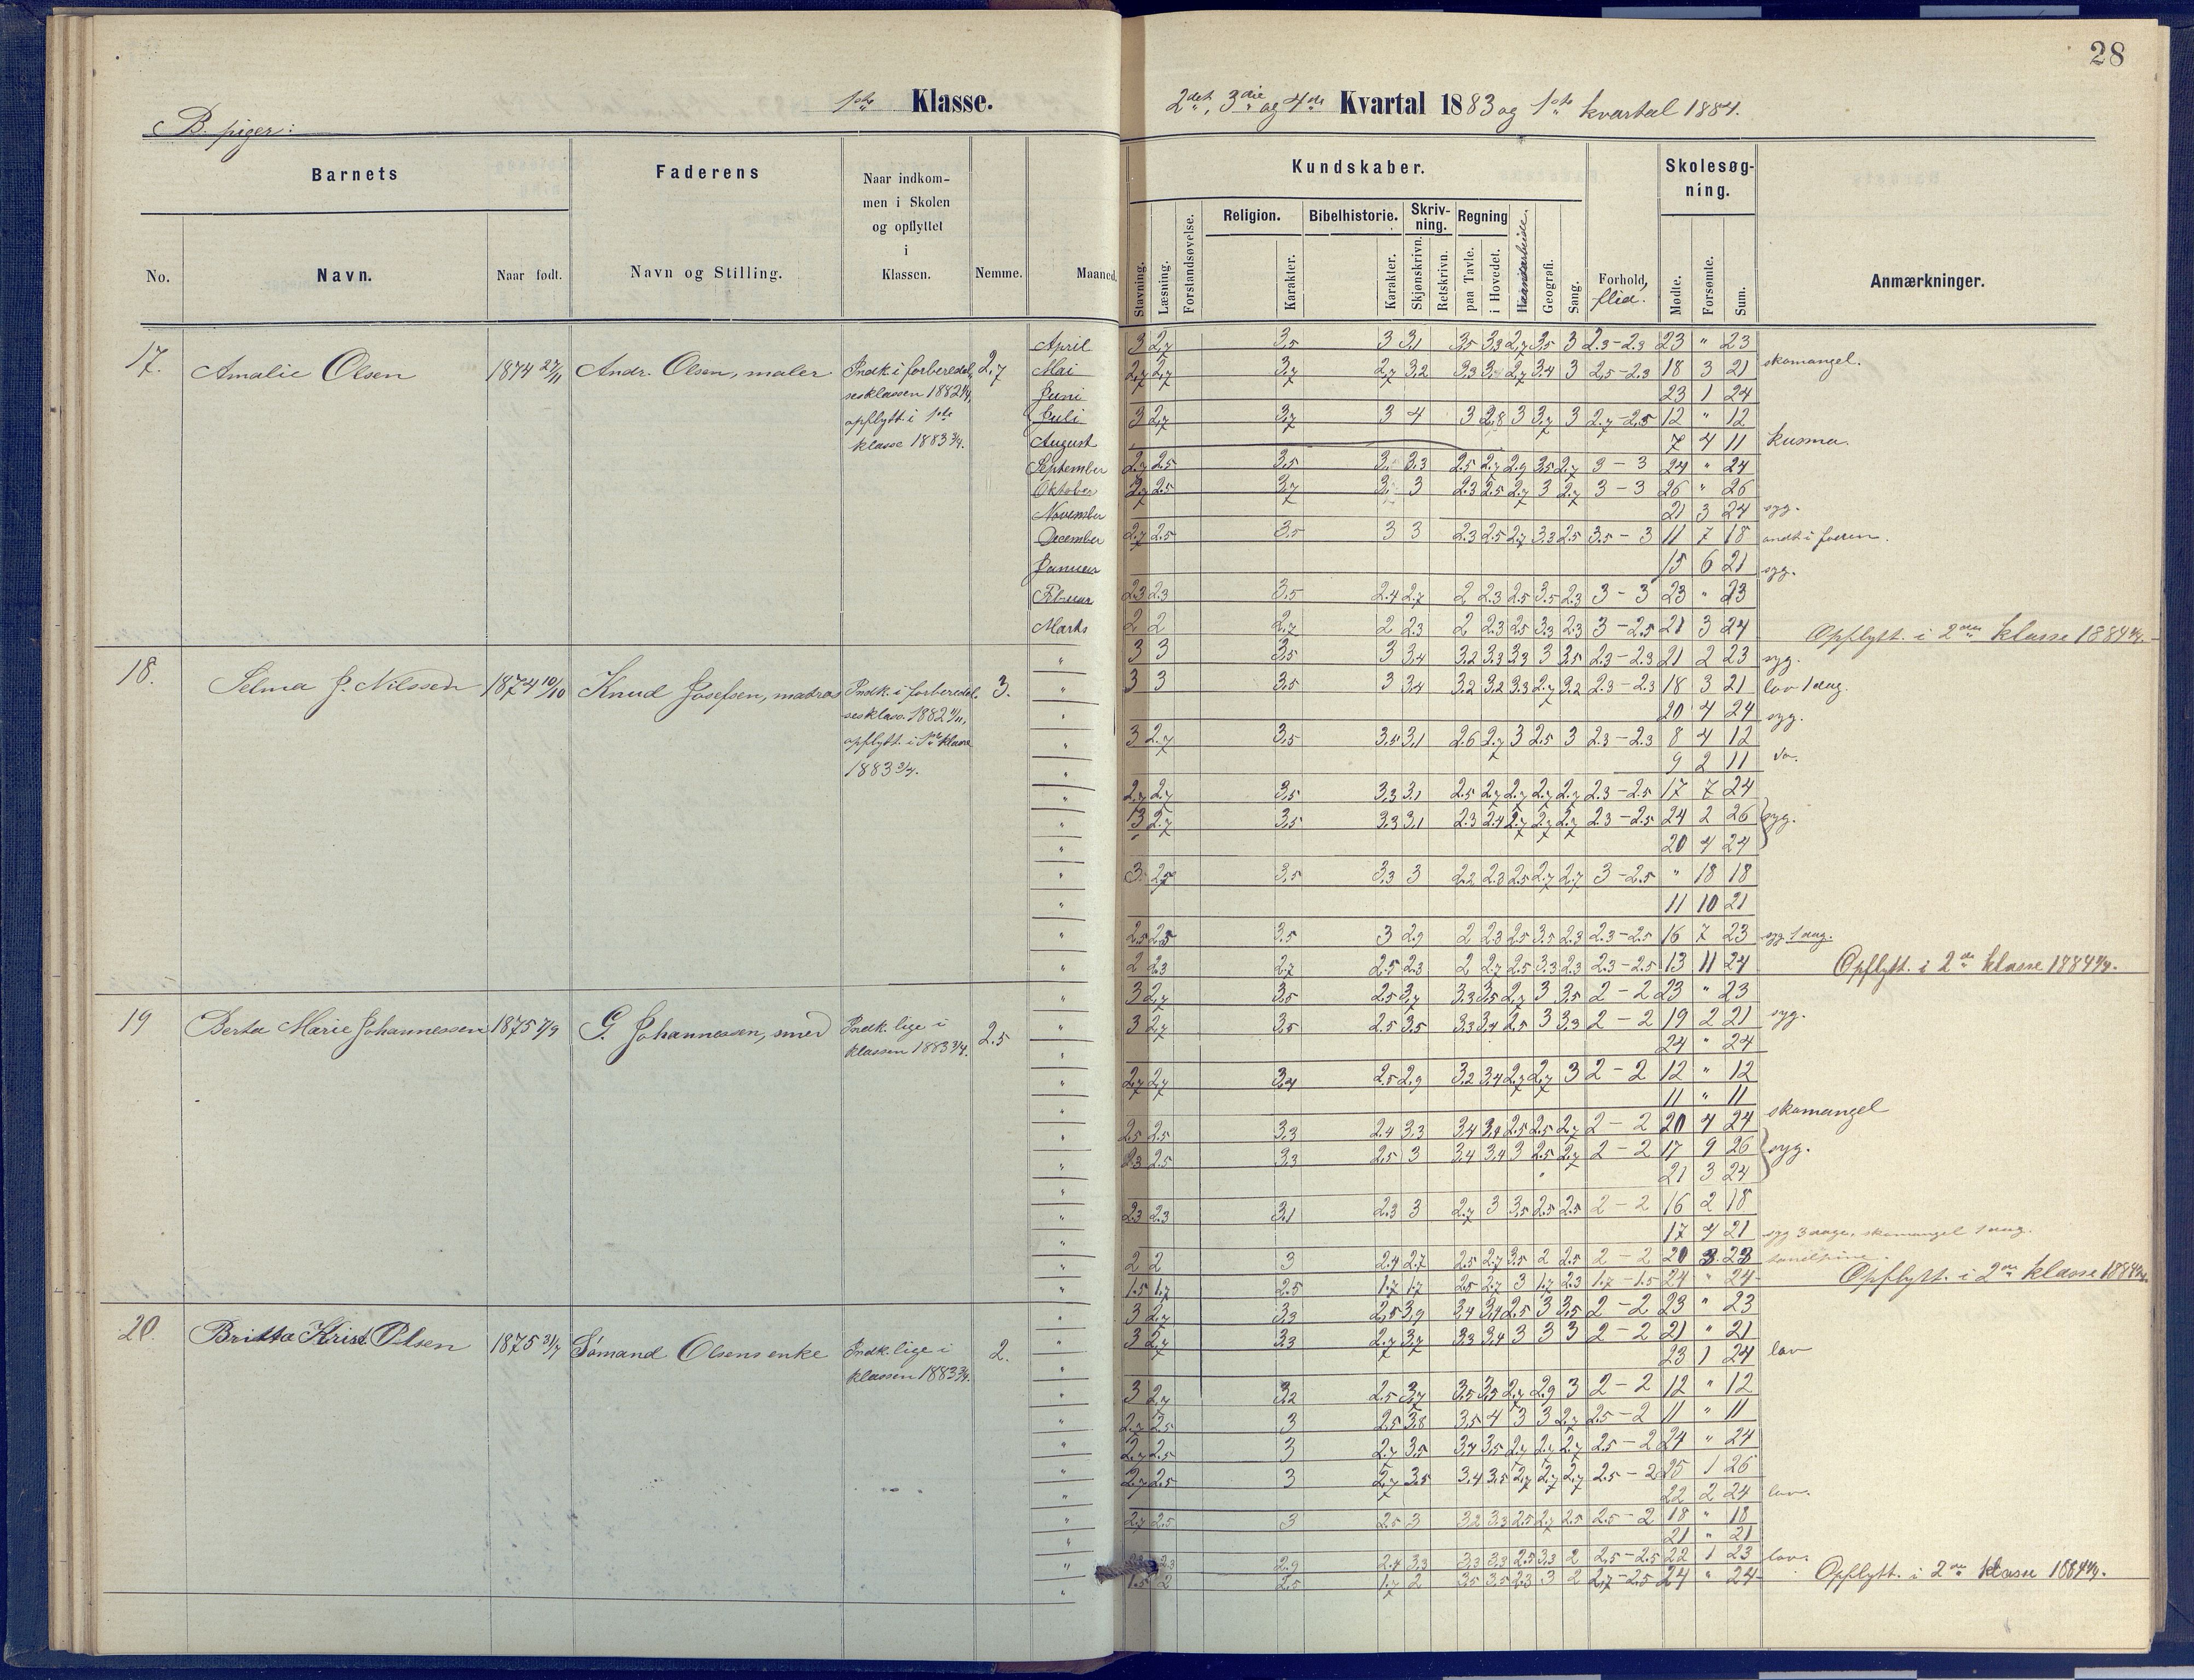 28
1ste Klasse.
2det, 3die og 4de Kvartal 1883 og 1ste kvartal 1884.
B. piger:
Barnets
Faderens
Naar indkom-
men i Skolen
og opflyttet
i
Klassen.
Nemme.
Maaned.
No.
Navn.
Naar født.
Navn og Stilling.
Kundskaber.
Skolesøg-
ning.
Religion.
Bibelhistorie.
Skriv-
ning.
Regning
Stavning.
Læsning.
Forstandsøvelse.
Karakter.
Karakter.
Skjønskrivn.
Retskrivn.
paa Tavle.
i Hovedet.
Haandarbeide.
Geografi.
Sang.
Forhold,
flid.
Mødte.
Forsømte.
Sum.
Anmærkninger.
17.
Amalie Olsen
1874 27/11
Andr. Olsen, maler
Indk. i forberedel-
sesklassen 1882
opflytt. i 1ste
klasse 1883 3/4.
2,7
April 3 2,7 3,5 3 3,1 3,5 3,3 2,7 3,5 3 2.3-2.3 23 " 23
Mai 2,7 2,7 3,7 2,7 3,2 3.3 3. 2,7 3.4 3 2,5-2.3 18 3 21 skomangel.
Juni 23 1 24
Juli 3 2,7 3,7 3 4 3 2,8 3 3,7 3 2,7-2,5 12 " 12
August 7 4 11 kusma.
September 2,7 2.5 3,5 3. 3.3 2.5 2,7 2.9 3.5 2,7 3-3 24 " 24
Oktober 2,7 2.5 3,7 3. 3 2.3 2.5 2,7 3 2,7 3-3 26 " 26
November 21 3 24 syg.
December 2,7 2.5 3.5 3 3 2.3 2.5 2,7 3.3 2.5 3.5-3 11 7 18
Januar 15 6 21 syg.
Februar 2.3 2.3 3.5 2.4 2.7 2 2.3 2.5 3.5 2.3 3-3 23 " 23
Marts 2 2 2,7 2 2.3 2 2.3 2.5 3.3 2.3 3-2.5 21 3 24 Opflytt. i 2den klasse 1884
18.
Selma J. Nilssen
1874 10/10
Knud Josefsen, matros
Indk. i forberedel-
sesklass. 1882
opflytt. i 1ste klasse
1883 3/4.
3.
" 3 3 3,5 3 3,4 3.2 3.3 3.3 3 3.5 2.3-2.3 21 2 23 syg.
" 3 3 3.5 3 3,4 3.2 3.2 3.3 2,7 3.2 2.3-2.3 18 3 21 lov 1 dag.
" 20 4 24 syg.
" 3 2,7 3,5 3,5 3,1 2.6 2,7 3 2.5 3 2.3-2.3 8 4 12
" 9 2 11 do.
" 2,7 2,7 3,5 3,3 3.1 2.5 2,7 2,7 2,7 2,7 2.3-2.5 17 7 24
" 3 2,7 3,5 3.3 3,1 2.3 2.4 2,7 2,7 2,7 2.3-2.5 24 2 26 syg.
" 20 4 24
" 3. 2.5 3,5 3.3 3 2.2 2.3 2.5 2.7 2.7 3-2.5 " 18 18
" 11 10 21
" 2.5 2.5 3.5 3 2.9 2 2.3 2.5 3.5 2.3 2.3-2.5 16 7 23 syg 1 dag.
" 2 2.3 2,7 2.5 2.3 2 2,7 2.5 3.3 2.3 2.3-2.5 13 11 24 Opflytt. i 2den klasse 1884
19
Berta Marie Johannessen
1875 7/9
G. Johannessen, smed
Indk. lige i
klassen 1883 3/4.
2.5
" 3 2,7 3,5 2.5 3,7 3.3 3.5 2,7 3 3.5 2-2 23 " 23
" 3 2,7 3,5 2.5 3,5 3.3 3.4 2.5 3 3.3 2-2 19 2 21 syg.
" 24 " 24
" 2,7 2,7 3,4 2.5 2.9 3.2 3.4 2,7 2,7 3 2-2 12 " 12
" 11 " 11
" 2.5 2.5 3.3 2.4 3.3 3.4 3.4 2.5 2.5 2,7 2-2 20 4 24 skomangel
" 2.3 2.5 3.3 2.5 3 3,4 3,4 3 2.5 2,7 2-2 17 9 26 syg.
" 21 3 24
" 2.3 2.3 3.1 2.3 3 2,7 3 3.5 2.5 2.5 2-2 16 2 18
" 17 4 21 syg 3 dage, skomangel 1 dag.
" 2 2 3 2.4 2.7 2.5 2.7 3.5 2 2.5 2-2 20 3 23 tandpine.
" 1.5 1.7 2.5 1.7 1.7 2.5 2.7 3 1.7 2.3 1.7-1.5 24 " 24 Opflytt. i 2den klasse 1884
20.
Britta Krist. Olsen
1875 31/7
Sømand Olsens enke
Indk. lige i
klassen 1883 3/4.
2.
" 3 2,7 3.3 2,5 3,9 3.4 3,4 2.5 3 3.5 2-2 23 " 23
" 3 2,7 3.3 2,7 3,7 3.3 3,4 3 3 3 2-2 21 " 21
" 23 1 24 lov
" 3 2,7 3,2 2.5 3,7 3.5 3.5 2,7 2.9 3 2-2 12 " 12
" 2,7 2.5 3 2.5 3.8 3.5 4 3 3 2,7 2.5-2 11 " 11
" 2,7 2.5 3 2,7 3.5 3,4 3,5 2,7 2,7 2,7 2.5-2 24 " 24
" 2,7 2.5 3 2,7 3.5 3.4 3.5 2,7 2,7 2,7 2.5-2 25 1 26
" 22 2 24 lov.
" 2,7 2.5 3 2.5 3 3.2 3.3 2.5 2,7 2.5 2.5-2 18 " 18
" 21 " 21
" 2.3 2.9 2.4 3.3 3.3 3.3 2.5 3.3 2 2,5-2.5 22 1 23 lov.
" 1.5 2 2.5 1.7 2 3.5 3.5 2.3 3 2 2,7-2.5 24 " 24 Opflytt. i 2den klasse 1884